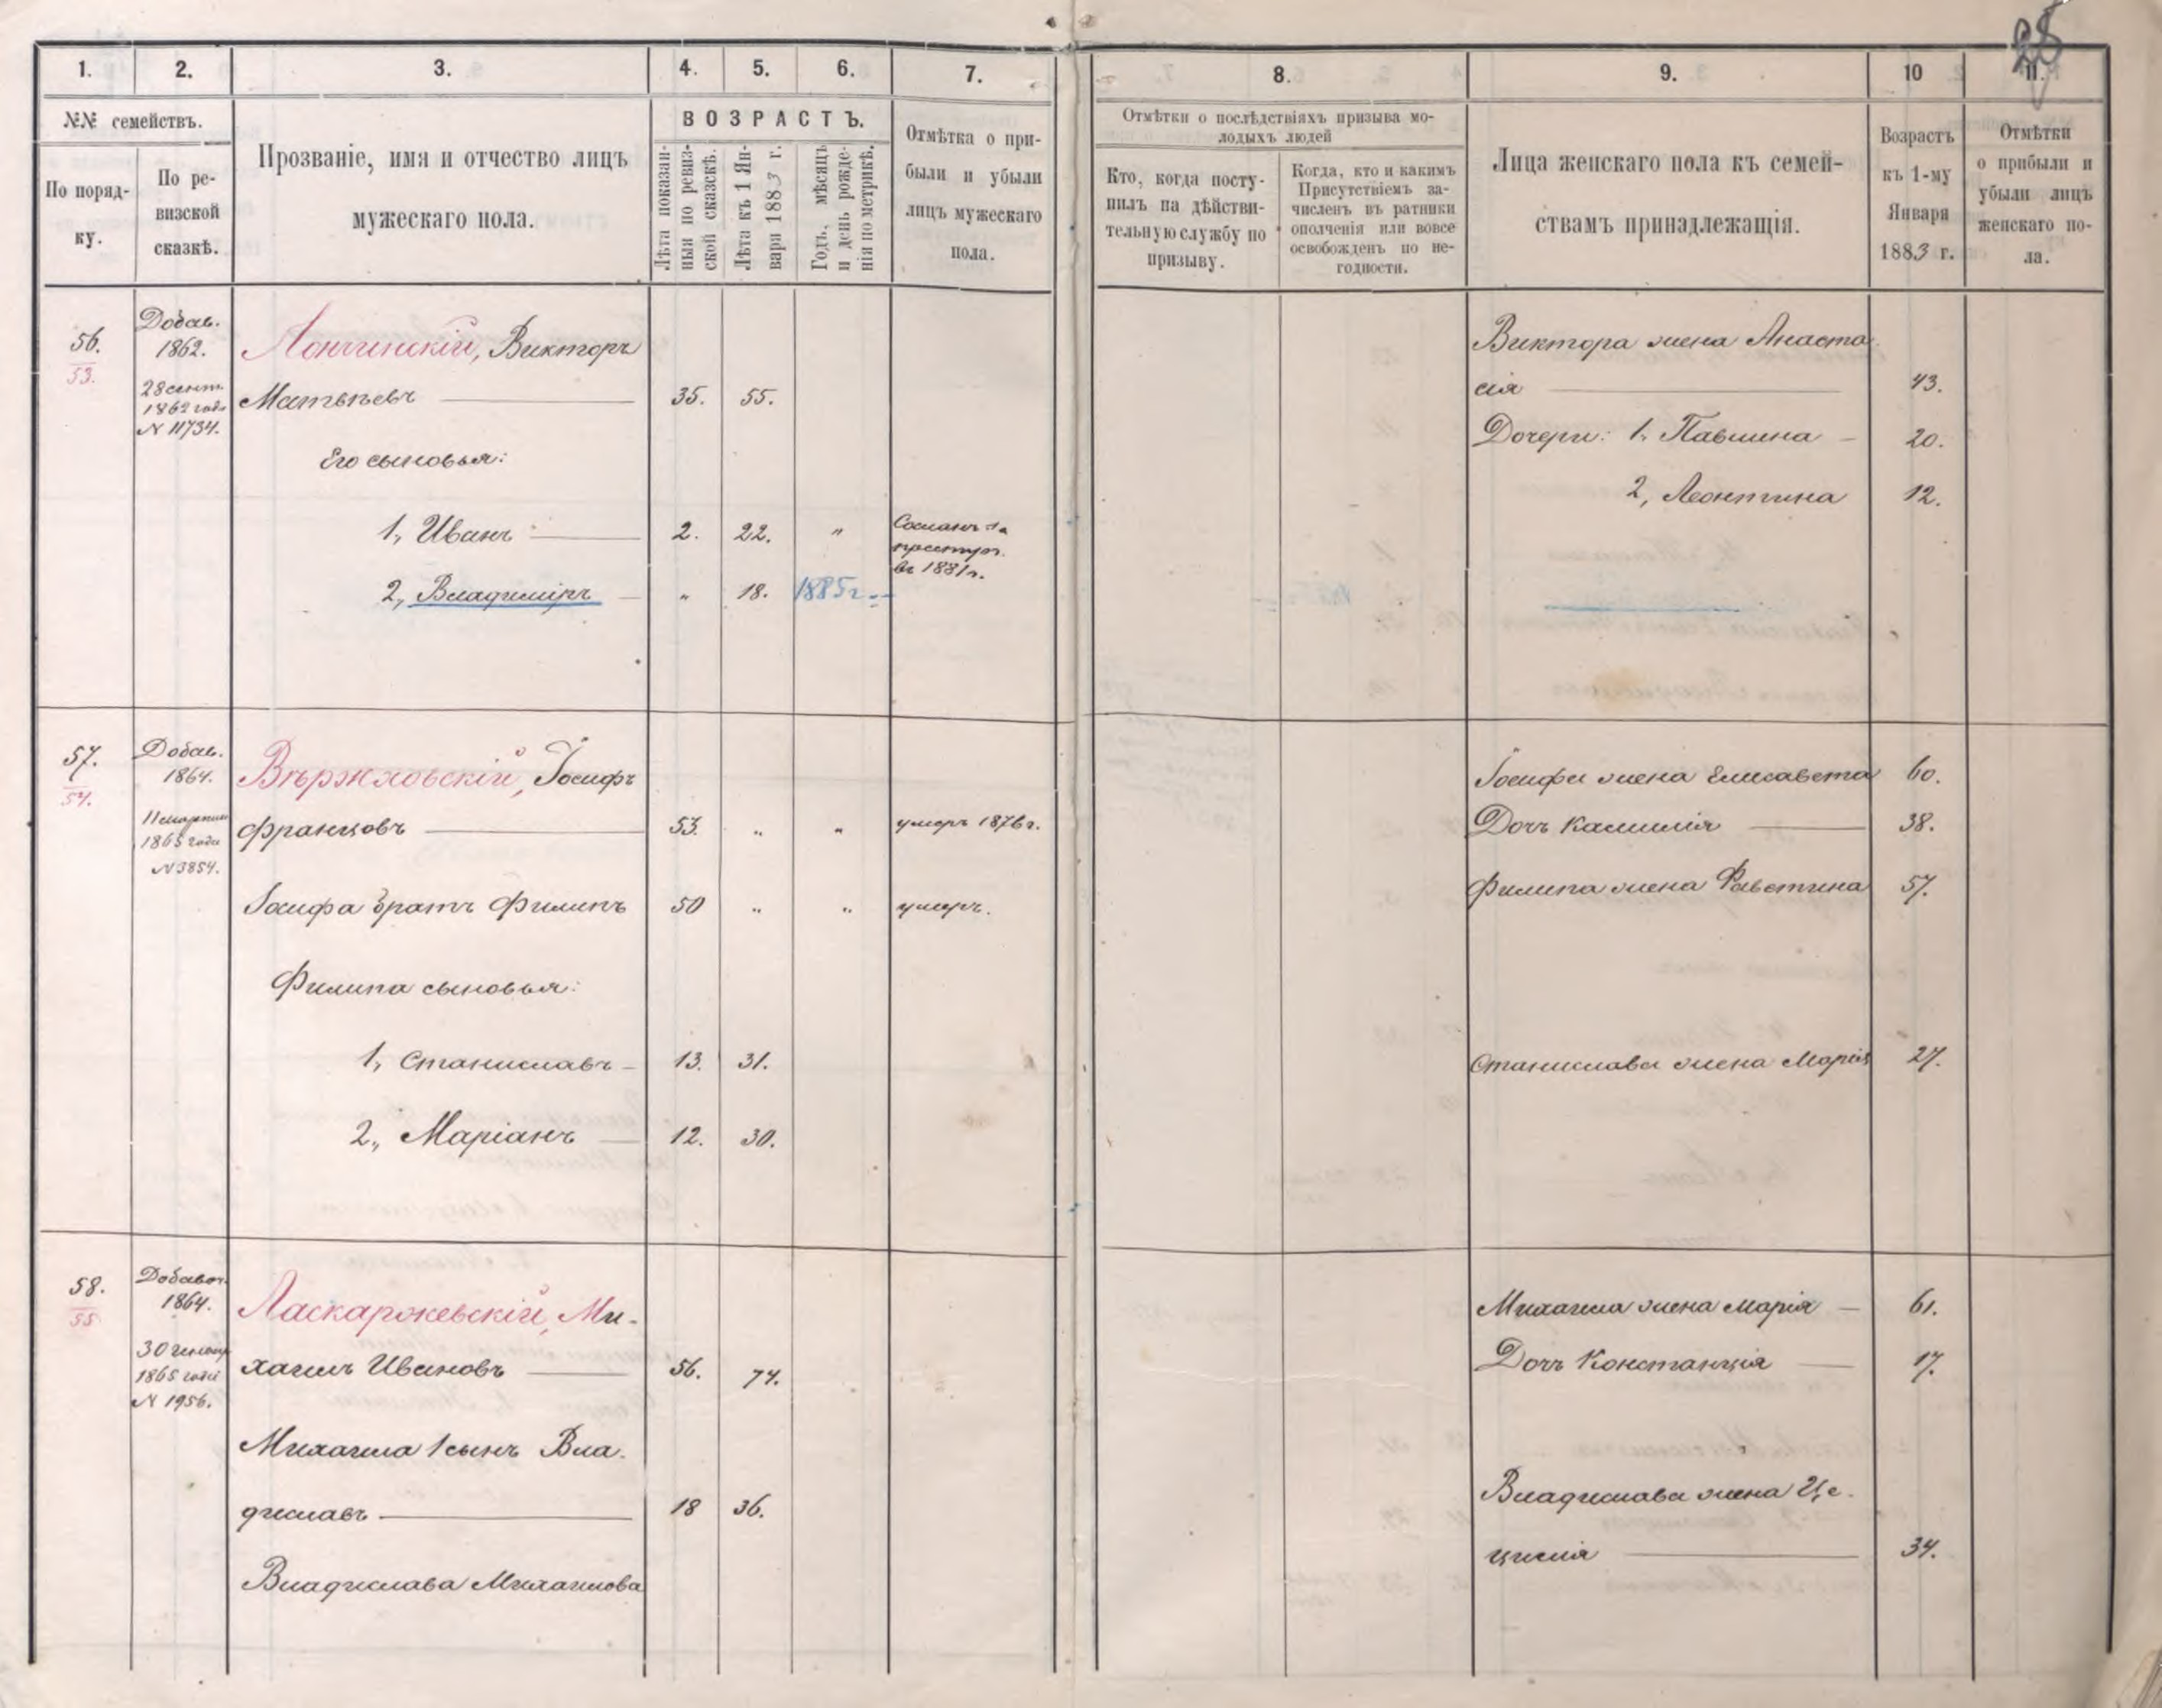 28
1. 2. 3. 4. 5. 6. 7. 8. 9. 10 11.
№№ семействъ.
По поряд-
ку.
По ре-
визской
сказкѣ.
Прозваніе, имя и отчество лицъ
мужескаго пола.
ВОЗРАСТЪ.
Лѣта показан-
ныя по ревиз-
ской сказкѣ.
Лѣта къ 1 Ян-
варя 1883 г.
Годъ, мѣсяцъ
и день рожде-
нія по метрикѣ.
Отмѣтка о при-
были и убыли
лицъ мужескаго
пола.
Отмѣтки о послѣдствіяхъ призыва мо-
лодыхъ людей
Кто, когда посту-
пилъ на дѣйстви-
тельную службу по
призыву.
Когда, кто и какимъ
Присутствіемъ за-
численъ въ ратники
ополченія или вовсе
освобожденъ по не-
годности.
Лица женскаго пола къ семей-
ствамъ принадлежащія.
Возрастъ
къ 1-му
Января
1883 г.
Отмѣтки
о прибыли и
убыли лицъ
женскаго по-
ла.
56.
53.
Добав.
1862.
28 сент.
1862 года
N 11734.
Лончинскій, Викторъ
Матвѣевъ 35. 55.
Его сыновья:
1, Иванъ 2. 22. "
Сосланъ за
преступ.
въ 1881 г.
2, Владиміръ " 18. 1885 г.
Виктора жена Анаста
сія 43.
Дочери: 1, Павлина 20.
2, Леонтина 12.
57.
54.
Добав.
1864.
11 марта
1865 года
N 3854.
Вержховскій, Іосифъ
Францовъ 53. " " умеръ 1876 г.
Іосифа братъ Филипъ 50 " " умеръ.
Филипа сыновья:
1, Станиславъ 13. 31.
2, Маріанъ 12. 30.
Іосифа жена Елисавета 60.
Дочь Камилія 38.
Филипа жена Фавстина 57.
Станислава жена Марія 27.
58.
55
Добавоч.
1864.
30 генвар
1865 года
N 1956.
Ласкаржевскій, Ми-
хаилъ Ивановъ 56. 74.
Михаила 1 сынъ Вла-
диславъ 18 36.
Владислава Михаилова
Михаила жена Марія 61.
Дочь Констанція 17.
Владислава жена Це-
цилія 34.